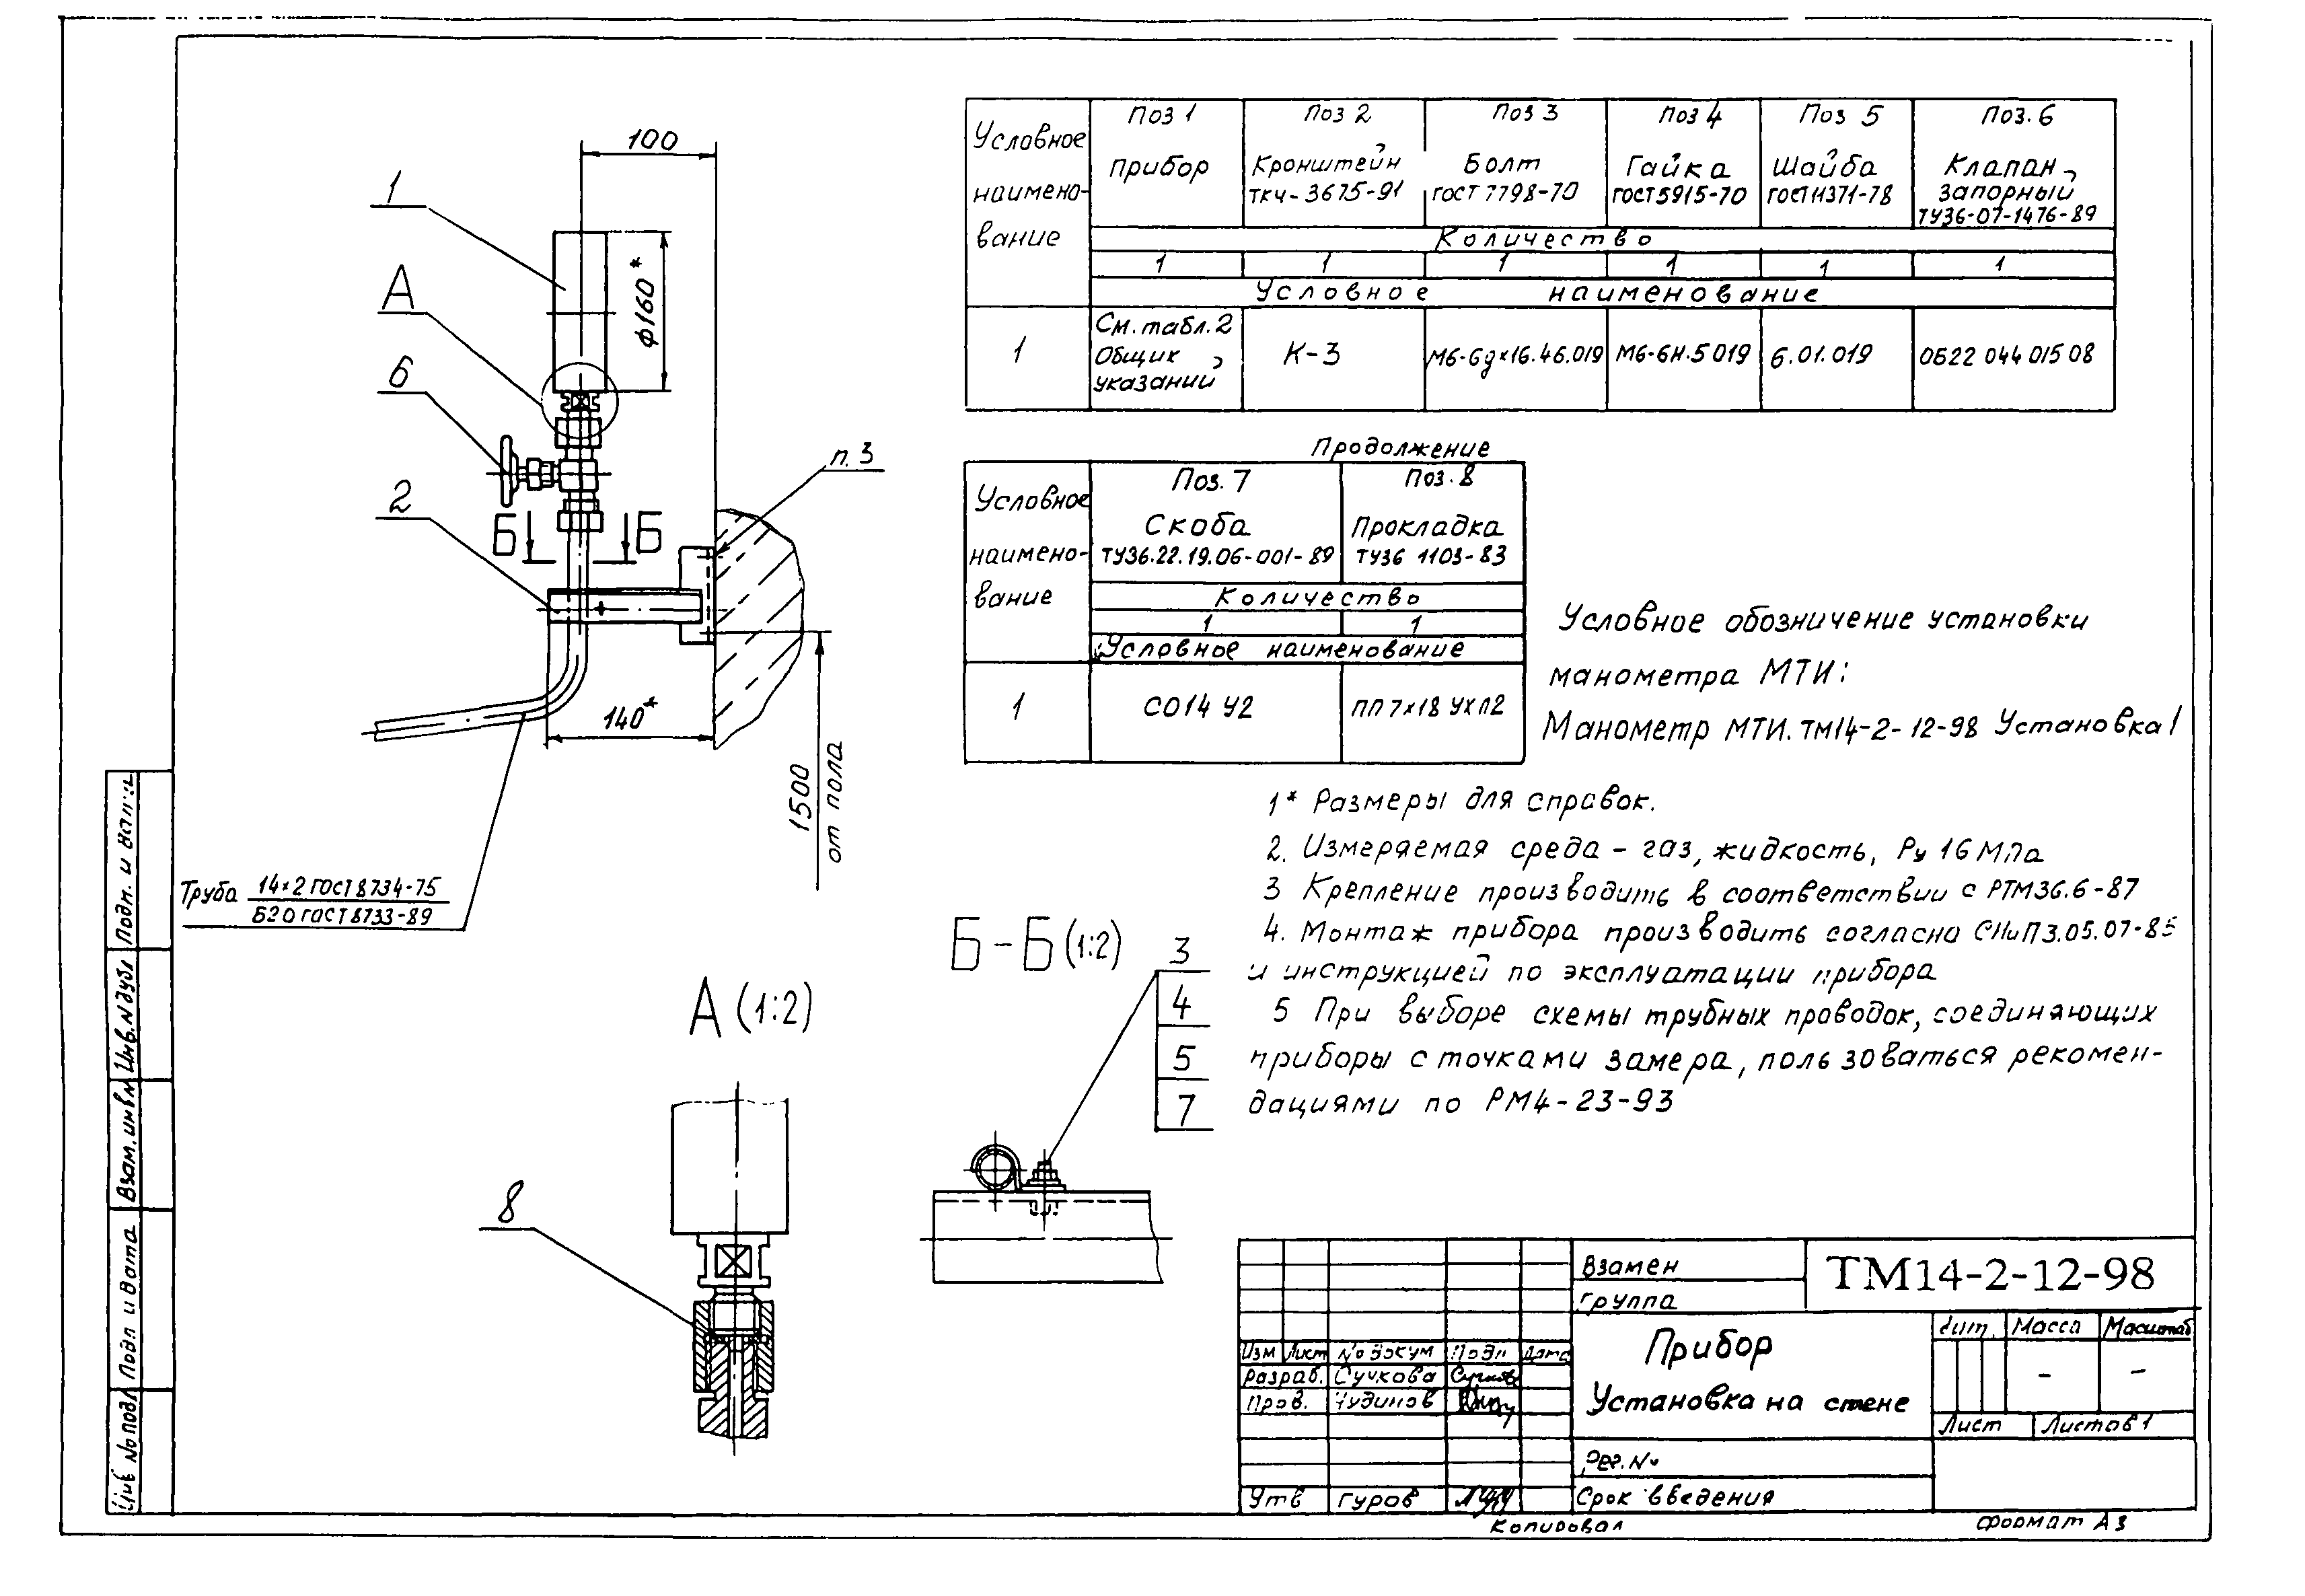 100
1
А
6
2
ф160*
п.3
Б
Б
140*
1500
от пола
Труба 14×2 ГОСТ 8734-75
Б20 ГОСТ 8733-89
Условное
наимено-
вание
Поз 1
Прибор
Поз 2
Кронштейн
ТК4-3675-91
Поз 3
Болт
ГОСТ 7798-70
Поз 4
Гайка
ГОСТ 5915-70
Поз 5
Шайба
ГОСТ 11371-78
Поз. 6
Клапан
запорный
ТУ36-07-1476-89
Количество
1 1 1 1 1 1
Условное наименование
1
См. табл. 2
Общих
указаний
К-3
М6-6g×16.46.019
М6-6Н.5 019
6.01.019
ОБ22 044 015 08
Продолжение
Условное
наимено-
вание
Поз. 7
Скоба
ТУ36.22.19.06-001-89
Поз. 8
Прокладка
ТУ36 1103-83
Количество
1 1
Условное наименование
1
СО14 У2
ПП 7×18 УХЛ2
Условное обозничение установки
манометра МТИ:
Манометр МТИ. ТМ14-2-12-98 Установка 1
1* Размеры для справок.
2. Измеряемая среда - газ, жидкость, Ру 16 МПа
3 Крепление производить в соответствии с РТМ36.6-87
4. Монтаж прибора производить согласно СНиП3.05.07-85
и инструкцией по эксплуатации прибора
5 При выборе схемы трубных проводок, соединяющих
приборы с точками замера, пользоваться рекомен-
дациями по РМ4-23-93
А (1:2)
8
Б-Б (1:2)
3
4
5
7
Подп. и дата
Инв. N дубл
Взам. инв N
Подп и дата
Инв No подл
Взамен
группа
ТМ14-2-12-98
Прибор
Установка на стене
Лит. Масса Масштаб
- -
Лист Листов 1
Изм Лист No докум Подп Дата
Разраб. Сучкова
Пров. Чудинов
Утв Гуров
Рег. N
Срок введения
Копировал
Формат А3